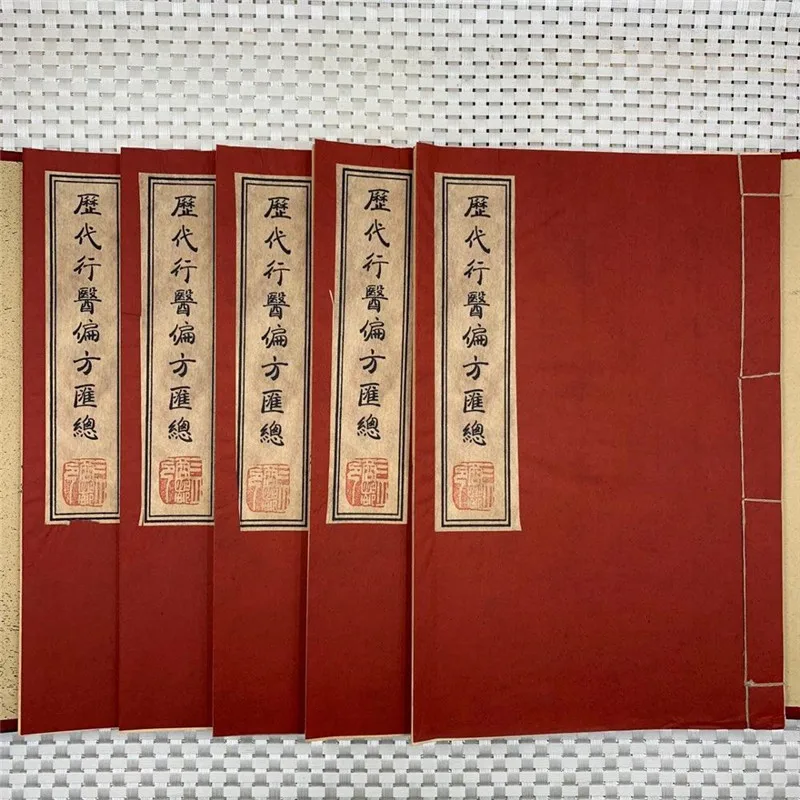 歷代行醫偏方匯總
歷代行醫偏方匯總
歷代行醫偏方匯總
歷代行醫偏方匯總
歷代行醫偏方匯總